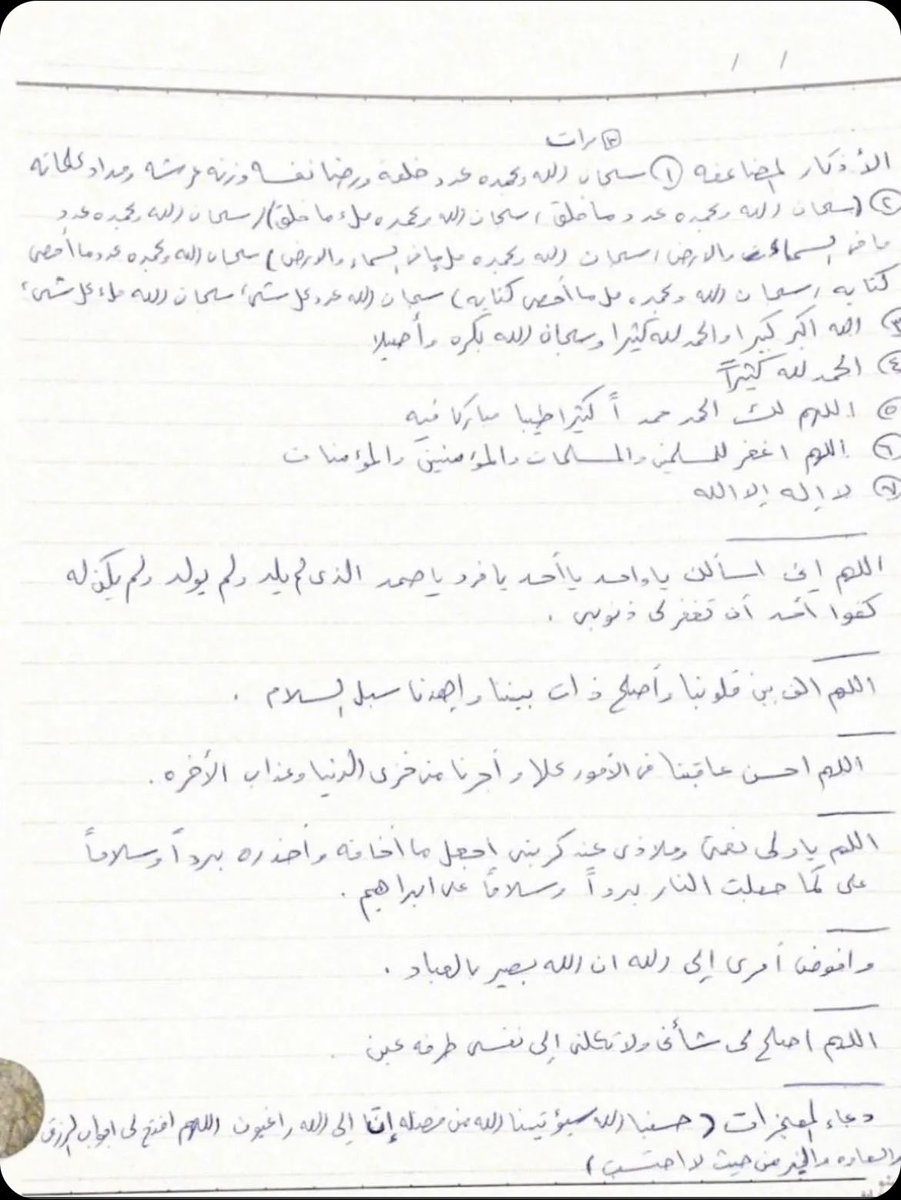 / /
③ مرات
الأذكار المضاعفه ① سبحان الله وبحمده عدد خلقه ورضا نفسه وزنة عرشه ومداد كلماته
② (سبحان الله وبحمده عدد ما خلق، سبحان الله وبحمده ملء ما خلق) (سبحان الله وبحمده عدد
ما في السماء والارض، سبحان الله وبحمده ملء ما في السماء والارض) سبحان الله وبحمده عدد ما أحصى
كتابه، سبحان الله وبحمده ملء ما أحصى كتابه) سبحان الله عدد كل شيء، سبحان الله ملء كل شيء،
③ الله اكبر كبيرا والحمد لله كثيرا وسبحان الله بكره وأصيلا
④ الحمد لله كثيراً
⑤ اللهم لك الحمد حمداً كثيرا طيبا مباركا فيه
⑥ اللهم اغفر للمسلمين والمسلمات والمؤمنين والمؤمنات
⑦ لا إله إلا الله
اللهم إني اسألك يا واحد يا أحد يا فرد يا صمد الذى لم يلد ولم يولد ولم يكن له
كفوا أحد أن تغفر لى ذنوبى .
اللهم الف بين قلوبنا وأصلح ذات بيننا واهدنا سبل السلام .
اللهم احسن عاقبتنا في الأمور كلها وأجرنا من خزى الدنيا وعذاب الأخره .
اللهم ياولى نعمتى وملاذى عند كربتى اجعل ما أخافه وأحذره برداً وسلاماً
على كما جعلت النار برداً وسلاماً على ابراهيم .
وافوض أمرى إلى الله ان الله بصير بالعباد .
اللهم اصلح لى شأنى ولا تكلنى إلى نفسى طرفه عين
دعاء المعجزات (حسبنا الله سيؤتينا الله من فضله إنّا إلى الله راغبون اللهم افتح لى ابواب الرزق
والسعاده والخير من حيث لا احتسب)